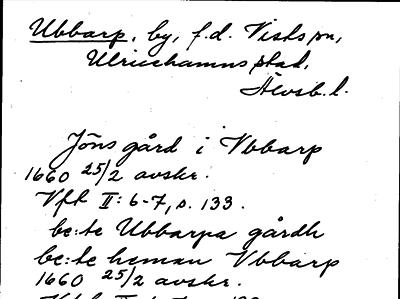 Ubbarp, by, f.d. Vists sn,
Ulricehamns stad,
Älvsb. l.
Jöns gård i Vbbarp
1660 25/2 avskr.
Vfh II: 6-7, s. 133.
be:te Ubbarpa gårdh
be:te heman Vbbarp
1660 25/2 avskr.